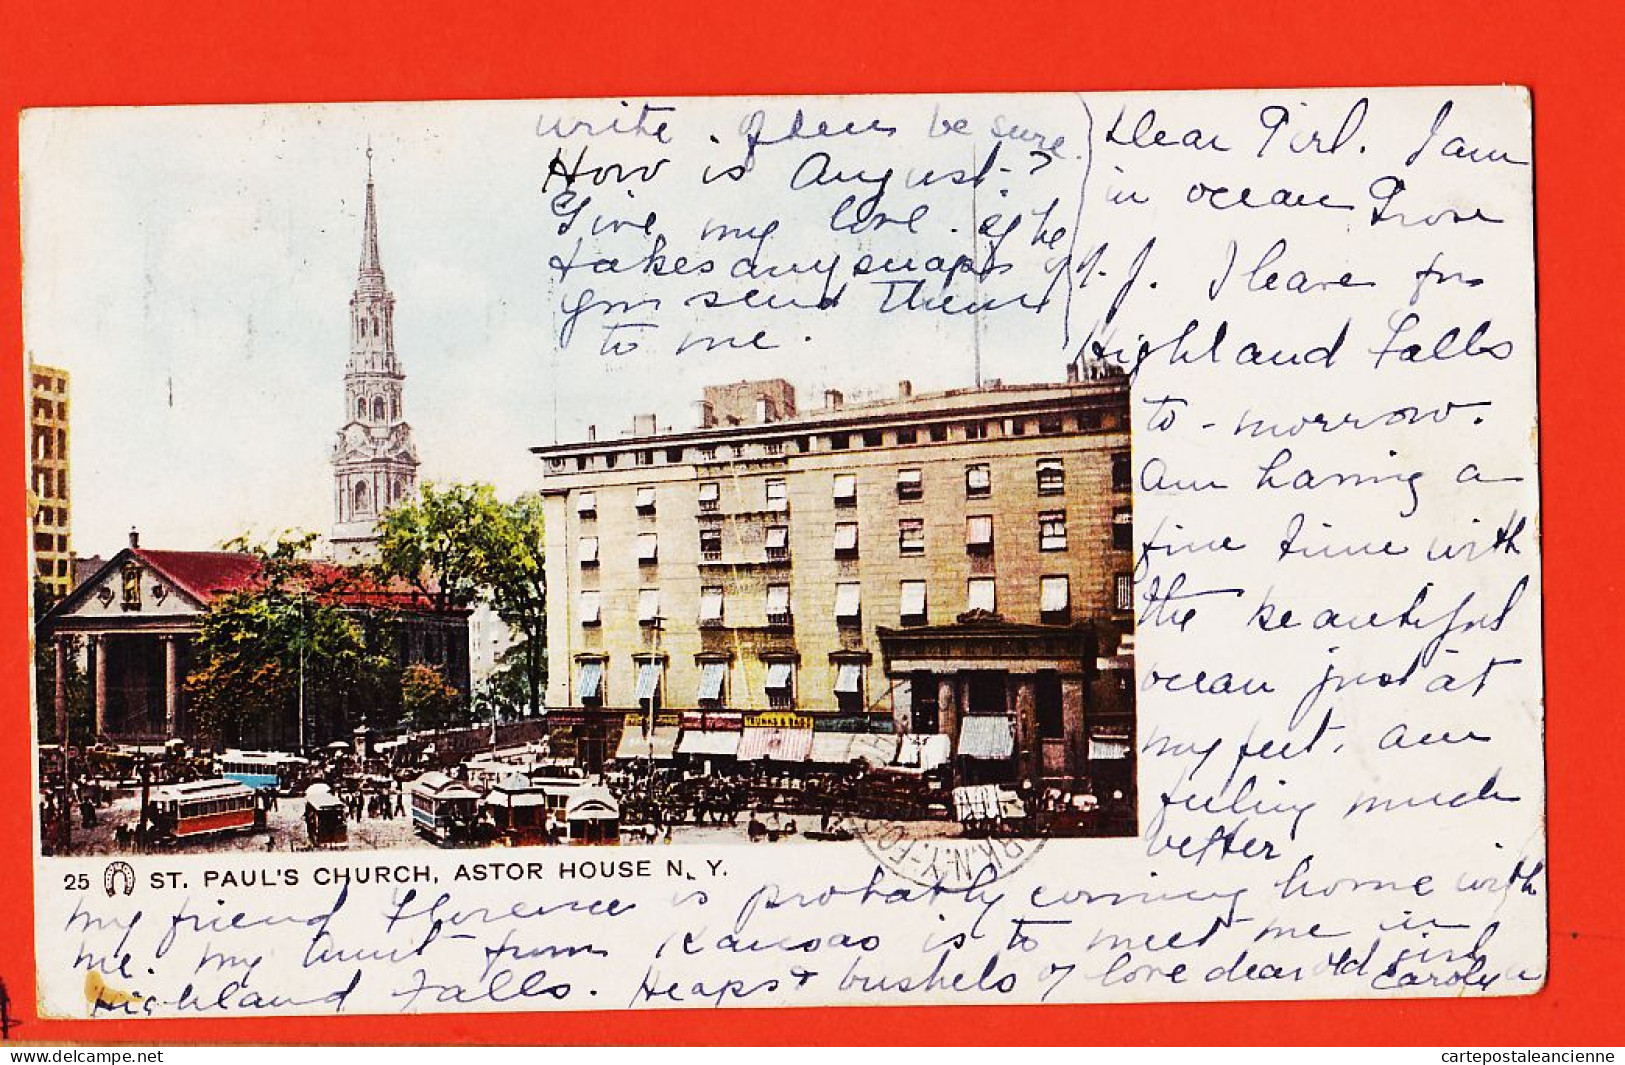 Dear Girl. I am
in ocean Grove
N. J. I leave for
Highland Falls
to-morrow.
Am having a
fine time with
the beautiful
ocean just at
my feet. Am
feeling much
better
my friend Florence is probably coming home with
me. my Aunt from Kansas is to meet me in
Highland Falls. Heaps & bushels of love dear old girl
Carolyn
write often be sure.
How is August?
Give my love. if he
takes any snaps of
you send them
to me.
TRUNKS & BAGS
25 ST. PAUL'S CHURCH, ASTOR HOUSE N. Y.
cartepostaleancienne